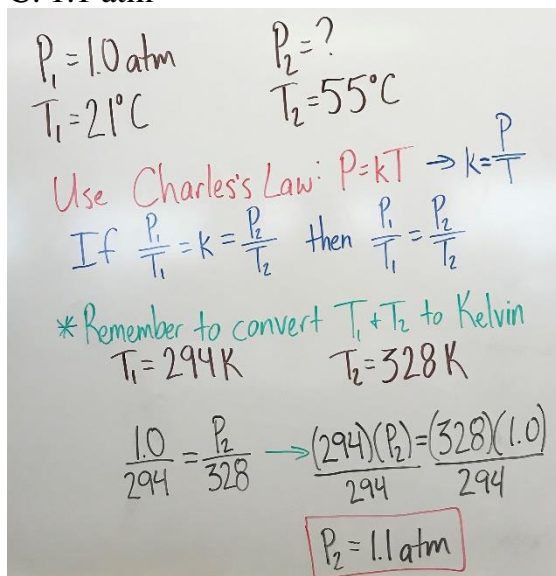 P₁ = 1.0 atm P₂ = ?
T₁ = 21°C T₂ = 55°C
Use Charles's Law: P = kT → k = P/T
If P₁/T₁ = k = P₂/T₂ then P₁/T₁ = P₂/T₂
* Remember to convert T₁ + T₂ to Kelvin
T₁ = 294 K T₂ = 328 K
1.0/294 = P₂/328 → (294)(P₂)/294 = (328)(1.0)/294
P₂ = 1.1 atm